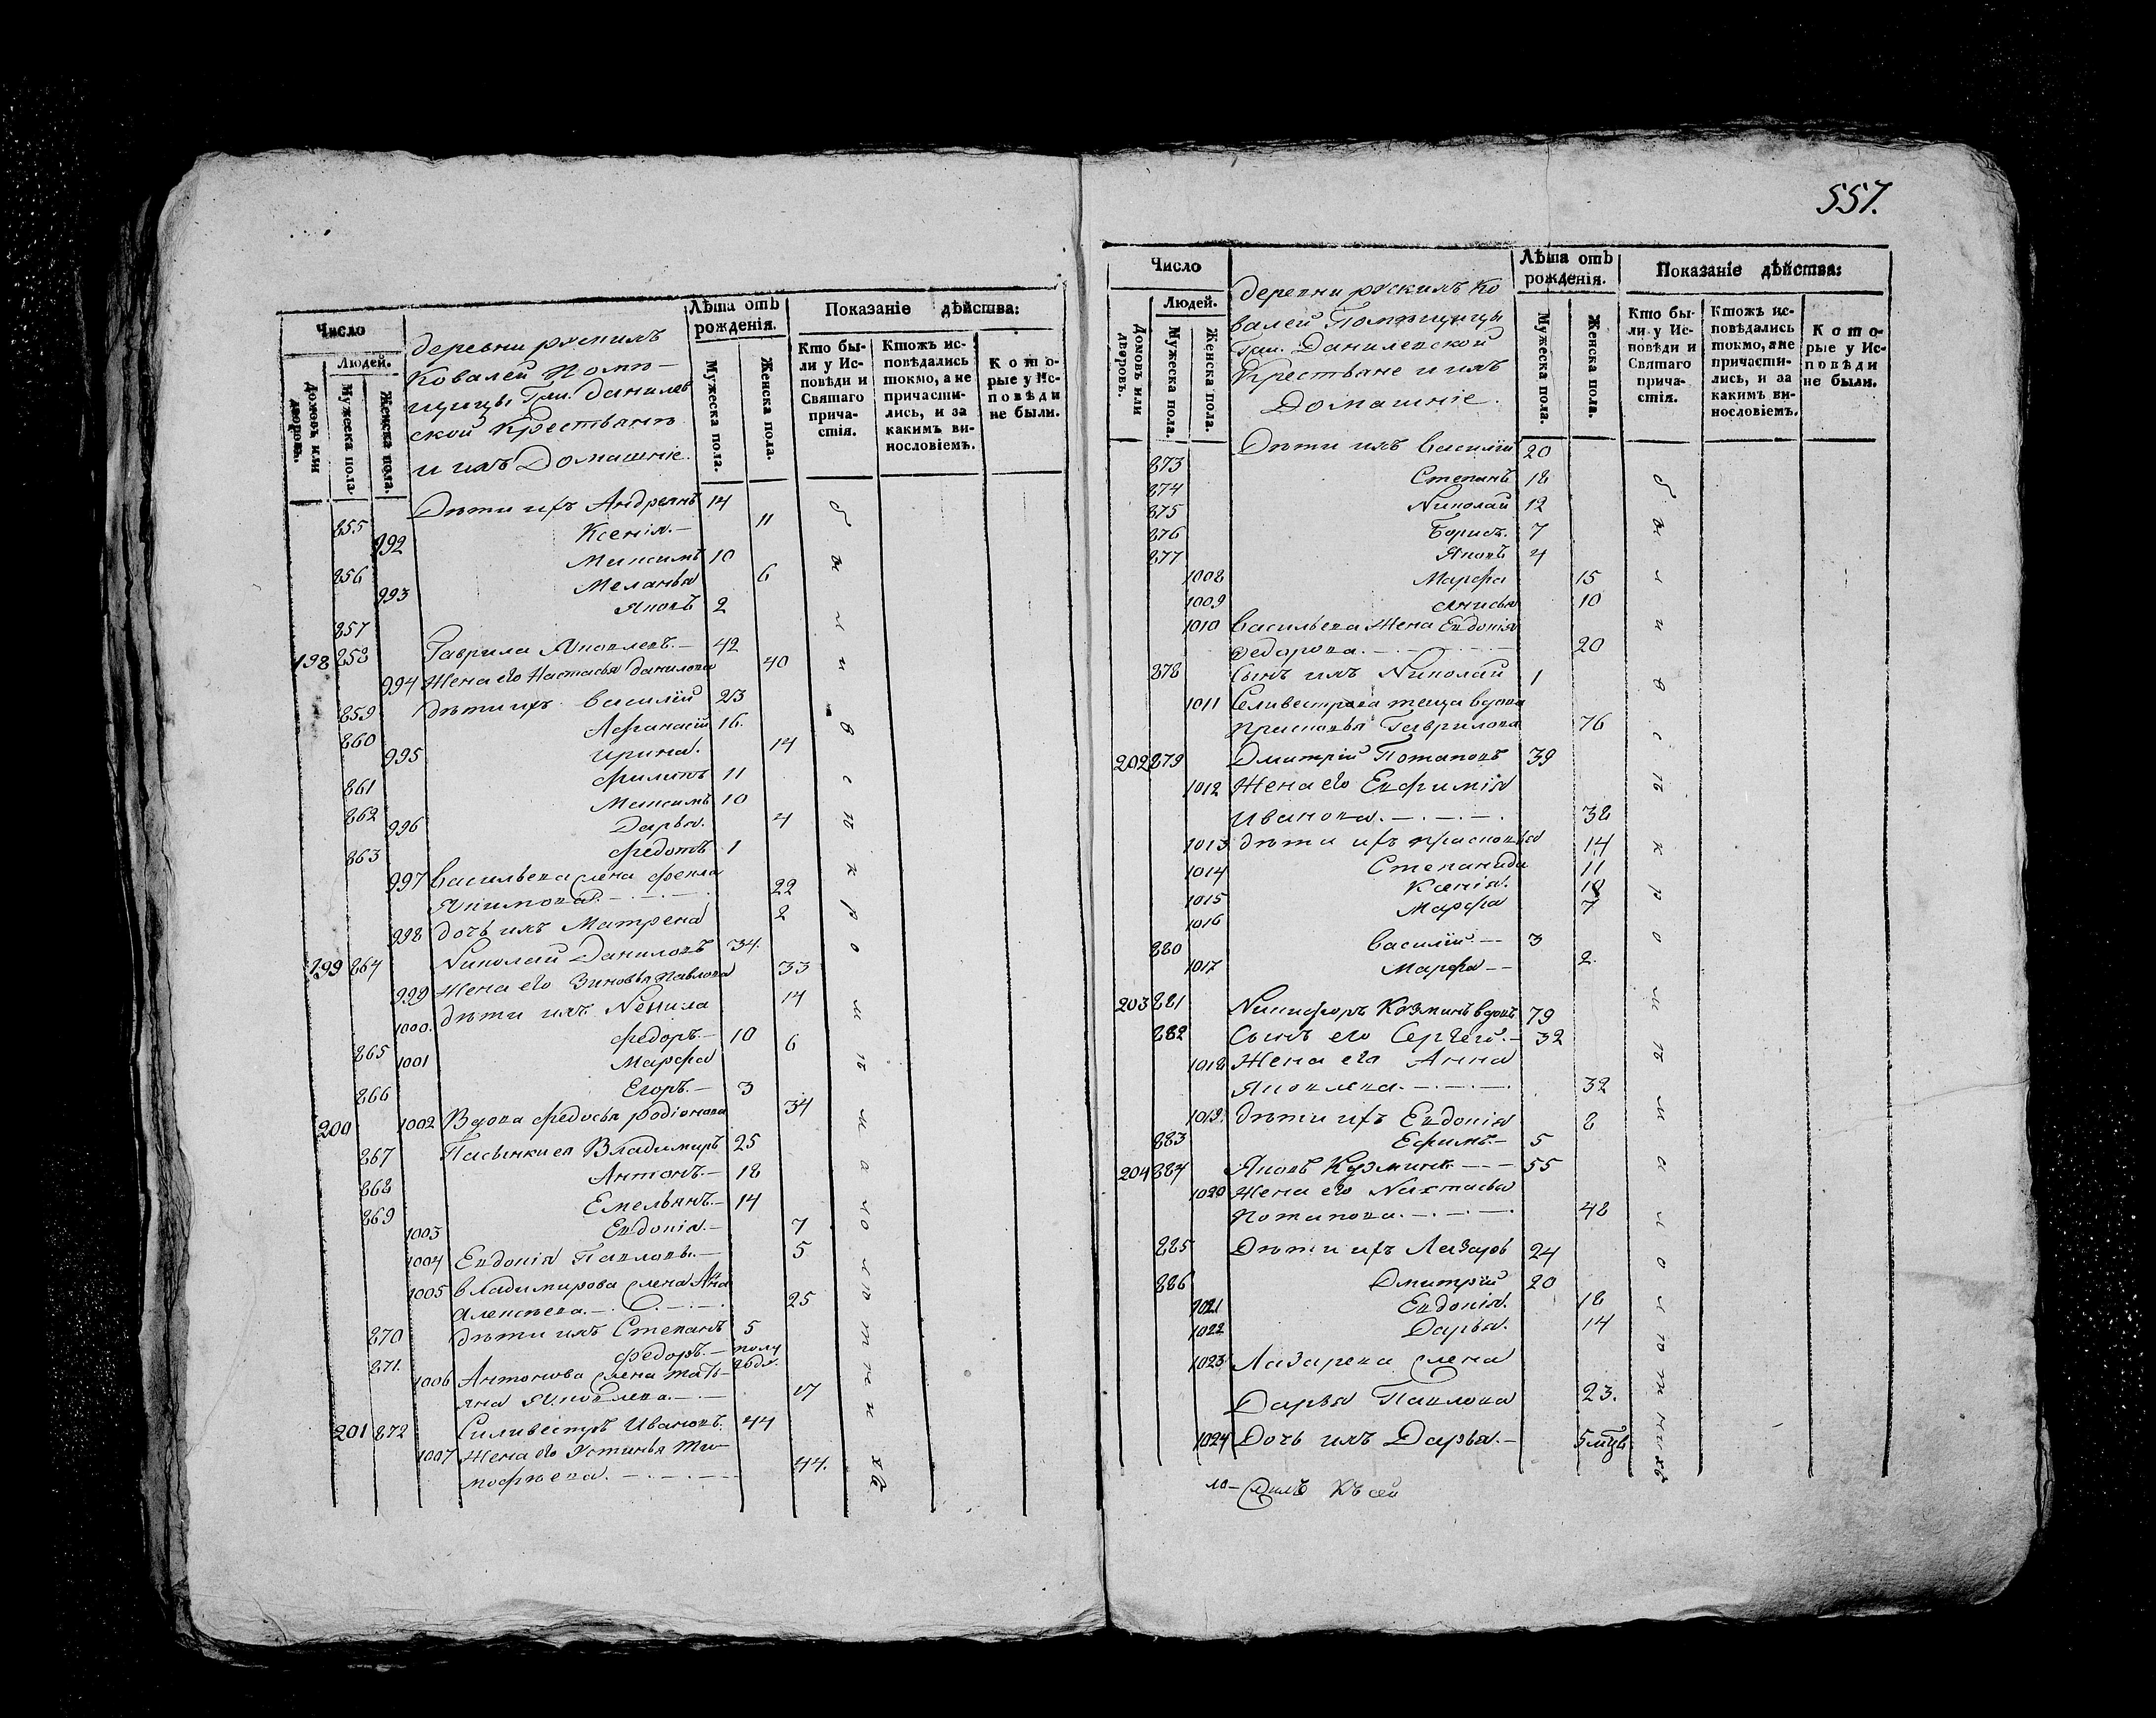 Число
Людей.
Домовъ или дворовъ.
Мужеска пола.
Женска пола.
деревни руских
Ковалей поме-
щицы Гпж. Данилев
ской Крестьяне
и ихъ Домашніе.
Лѣта отъ рожденія.
Мужеска пола.
Женска пола.
Показаніе дѣйства:
Кто бы-
ли у Ис-
повѣди и
Святаго
прича-
стія.
Ктожъ ис-
повѣдались
токмо, а не
причасти-
лись, и за
какимъ ви-
нословіемъ.
Кото-
рые у Ис-
повѣди
не были.
855 Дѣти ихъ Андреянъ 14
992 Ксенія. 11
856 Максимъ 10
993 Меланья 6
857 Яковъ 2
198 858 Гаврила Яковлевъ. 42
994 Жена его Настасья Данилова 40
859 дѣти ихъ Василій 23
860 Афанасій 16.
995 Ирина. 14
861 Филипъ 11
862 Максимъ 10
996 Дарья. 4
863 Федотъ 1
997 Васильева жена Фекла
Якимова. 22
998 дочь ихъ Матрена 2
199 864 Николай Даниловъ 34.
999 Жена его Зиновья Павлова 33
1000. дѣти ихъ Ненила 14
865 Федоръ. 10
1001 Марфа 6
866 Егоръ. 3
200 1002 Вдова Федосья Родіонова 34
867 Пасынки ея Владимиръ 25
868 Антонъ. 18
869 Емельянъ. 14
1003 Евдокія. 7
1004 Евдокія Павлова. 5
1005 Владимирова жена Анна
Алексѣева. 25
870 дѣти ихъ Степанъ 5
871. Федоръ. полу
годъ.
1006 Антонова жена Татья-
на Яковлева. 17
201 872 Силивестръ Ивановъ. 44
1007 Жена его Устинья Ти-
мофѣева. 44.
557.
Число
Людей.
Домовъ или дворовъ.
Мужеска пола.
Женска пола.
деревни руских Ко
валей Помѣщицы
Гпж. Данилевской
Крестьяне и ихъ
Домашніе.
Лѣта отъ
рожденія.
Мужеска пола.
Женска пола.
Показаніе дѣйства:
Кто бы-
ли у Ис-
повѣди и
Святаго
прича-
стія.
Ктожъ ис-
повѣдались
токмо, а не
причасти-
лись, и за
какимъ ви-
нословіемъ.
Кото-
рые у Ис-
повѣди
не были.
873 Дѣти ихъ Василій 20
874 Степанъ 18
875 Николай 12
876 Борисъ. 7
877 Яковъ 4
1008 Марфа 15
1009 Анисья 10
1010 Васильева Жена Евдокія
Федорова. 20
878 Сынъ ихъ Николай 1
1011 Селивестрова теща вдова
Прасковья Гаврилова 76
202 879 Дмитрій Потаповъ 39
1012 Жена его Евфимія
Иванова. 38
1013 дѣти ихъ Прасковья 14
1014 Степанида 11
1015 Ксенія. 10
1016 Марфа 7
880 Василій. 3
1017 Марфа 2.
203 881 Никифоръ Кузминъ вдовъ 79
882 Сынъ его Сергей. 32
1018 Жена его Анна
Яковлева. 32
1019. дѣти ихъ Евдокія 8
883 Ефимъ. 5
204 884 Яковъ Кузминъ. 55
1020 Жена его Настасья
Потапова. 48
885 Дѣти ихъ Лазарь 24
886 Дмитрій 20
1021 Евдокія. 18
1022 Дарья. 14
1023 Лазарева жена
Дарья Павлова 23.
1024 Дочь ихъ Дарья. 5 мцов